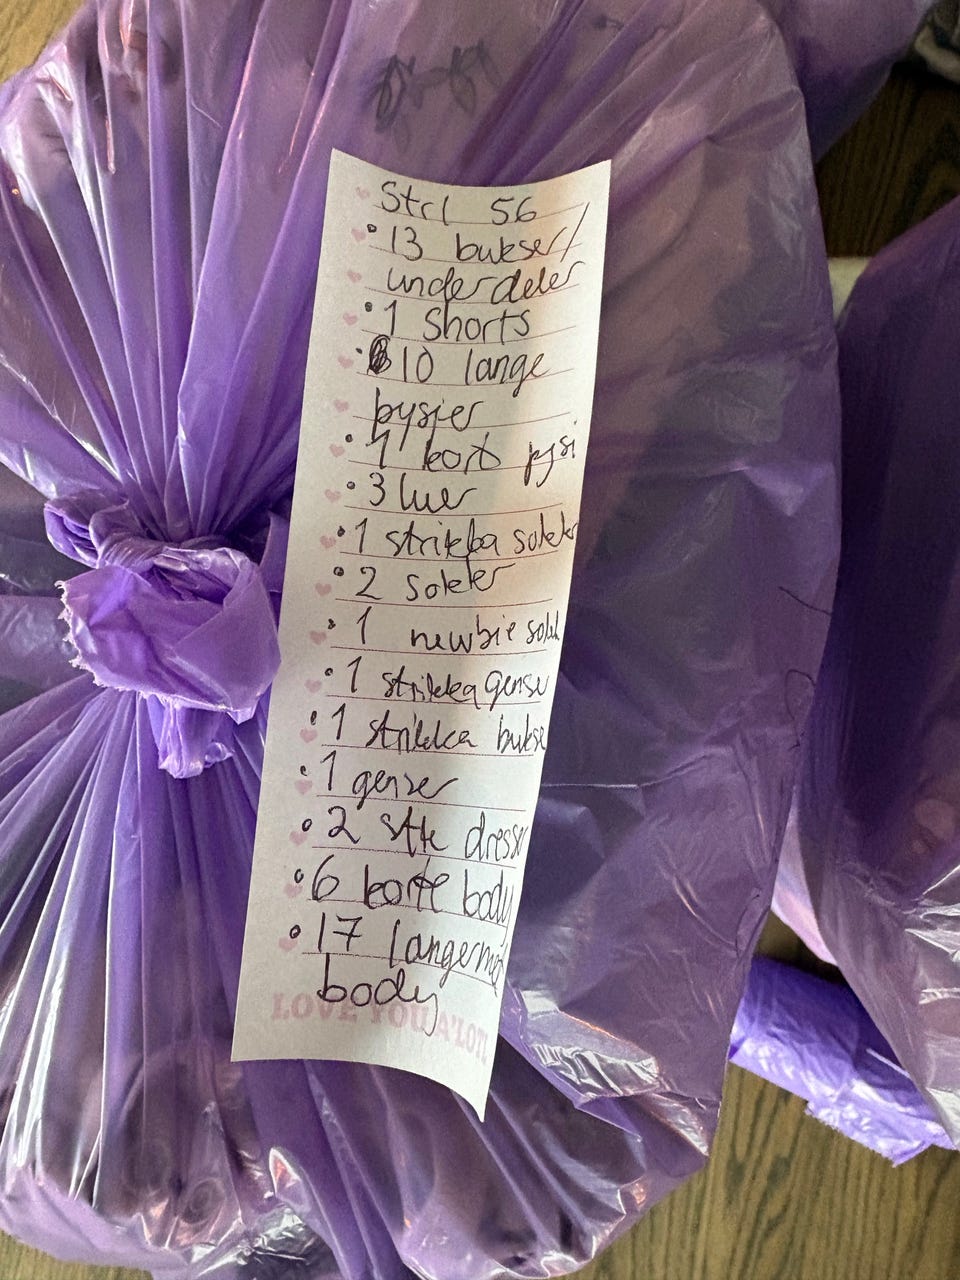 Strl 56
• 13 bukser/
underdeler
• 1 Shorts
• 10 lange
pysjer
• 1 kort pysj
• 3 luer
• 1 strikka
• 2
• 1 newbie
• 1 strikka genser
• 1 strikka bukse
• 1 genser
• 2 dresser
• 6 korte body
• 17 langermet
body
LOVE YOU A'LOT!